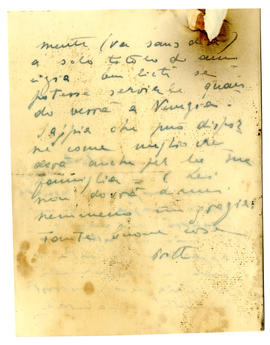 mente (va sans dire)
a solo titolo di ami
cizia
potesse servirle quan
do verrà a Venezia.
Sappia che può dispor
ne come meglio cre
derà anche per la sua
famiglia - e Lei
non dovrà darmi
nemmeno un grazie
Tante buone cose